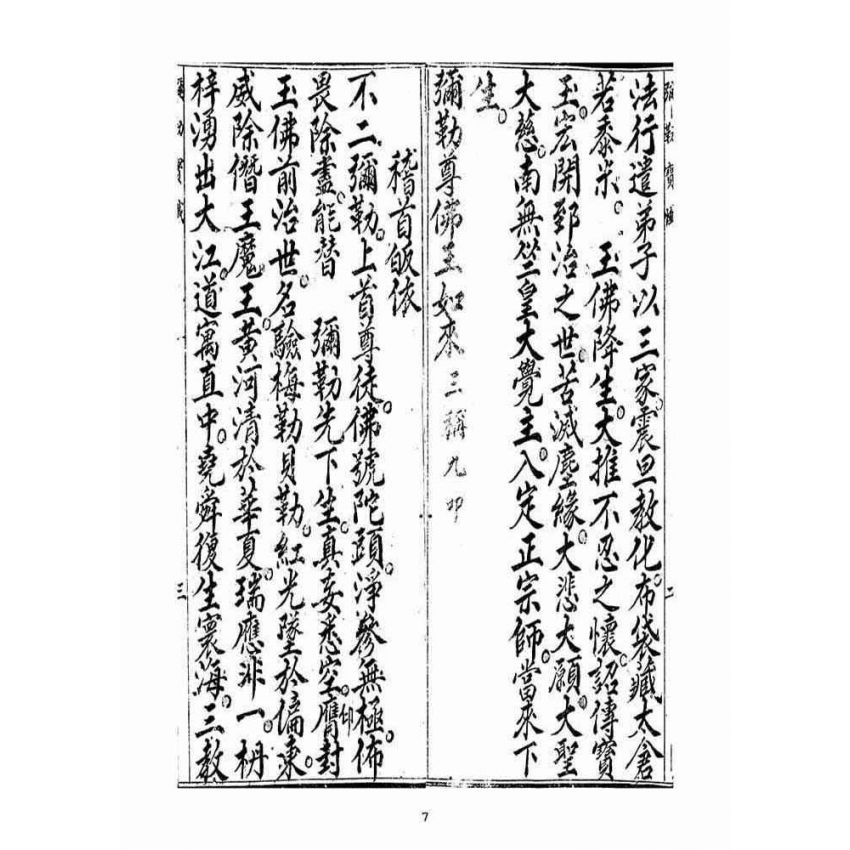 彌勒寶懺
二
法行遣弟子以三家震旦教化。布袋藏太倉
若黍米。 玉佛降生。大推不忍之懷。詔傳寶
玉。宏開郅治之世。苦滅塵緣。大悲大願。大聖
大慈。南無竺皇大覺主。入定正宗師。當來下
生。
彌勒尊佛王如來三稱九叩
稽首皈依
不二彌勒。上首尊徒。佛號陀頭。淨參無極。佈
畏除盡。能替 彌勒先下生。真妄悉空。仰膺封
玉佛前治世。名驗梅勒貝勒。紅光墜於偏東。
威除僭王魔王。黃河清於華夏。瑞應非一。枬
梓湧出大江。道寓直中。堯舜復生寰海。三教
彌勒寶懺
三
7